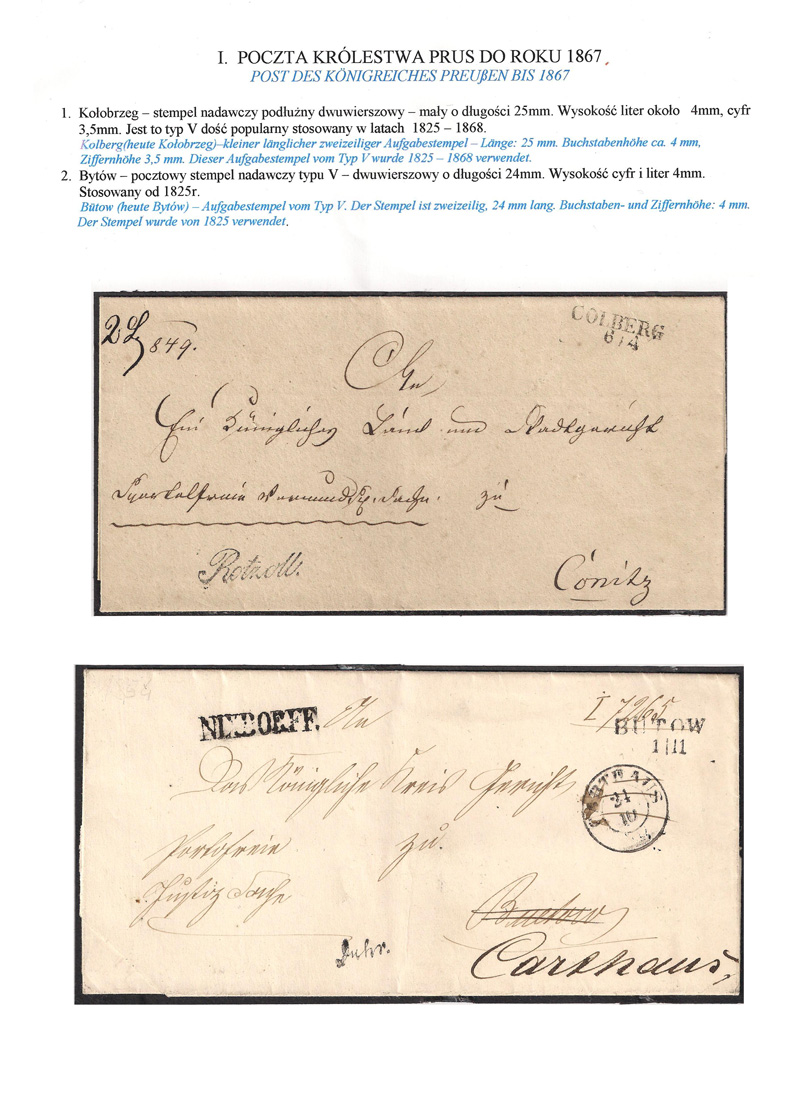 I. POCZTA KRÓLESTWA PRUS DO ROKU 1867
POST DES KÖNIGREICHES PREUßEN BIS 1867
1. Kołobrzeg – stempel nadawczy podłużny dwuwierszowy – mały o długości 25mm. Wysokość liter około 4mm, cyfr
3,5mm. Jest to typ V dość popularny stosowany w latach 1825 – 1868.
Kolberg(heute Kołobrzeg)–kleiner länglicher zweizeiliger Aufgabestempel – Länge: 25 mm. Buchstabenhöhe ca. 4 mm,
Ziffernhöhe 3,5 mm. Dieser Aufgabestempel vom Typ V wurde 1825 – 1868 verwendet.
2. Bytów – pocztowy stempel nadawczy typu V – dwuwierszowy o długości 24mm. Wysokość cyfr i liter 4mm.
Stosowany od 1825r.
Bütow (heute Bytów) – Aufgabestempel vom Typ V. Der Stempel ist zweizeilig, 24 mm lang. Buchstaben- und Ziffernhöhe: 4 mm.
Der Stempel wurde von 1825 verwendet.
COLBERG
6/4
849.
An
Ein Königliches Land und Stadtgericht
zu
Conitz
An
I 7265
BUTOW
1|11
Das Königliche Kreis Gericht
21
10
Portofreie
zu.
Justiz Sache
Buetow
Carthaus,